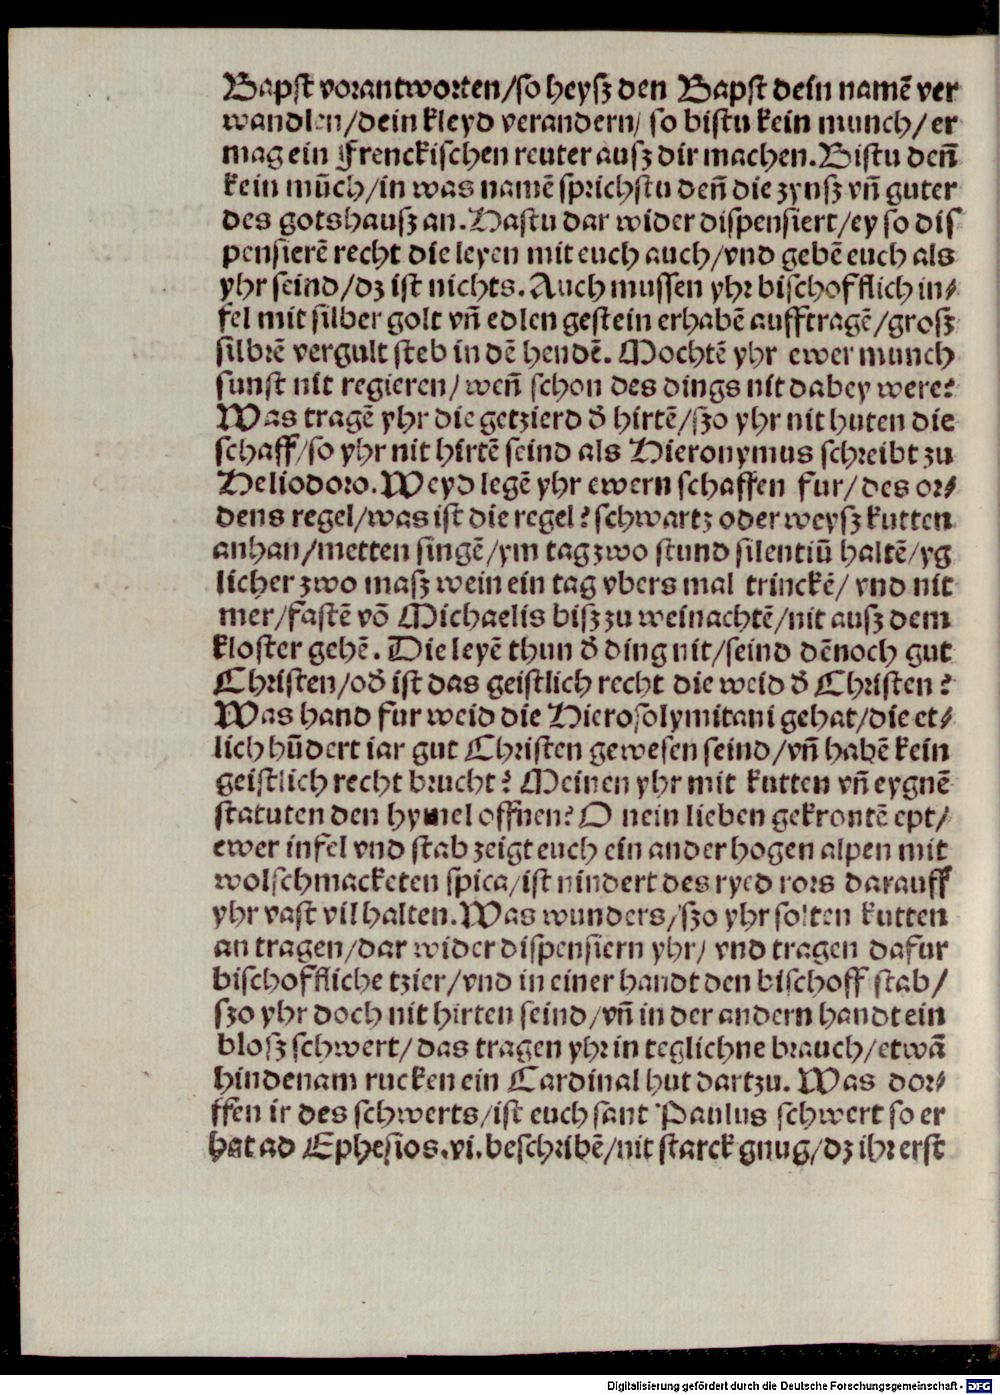 Bapst vorantworten/so heysz den Bapst dein namē ver
wandlen/dein kleyd verandern/ so bistu kein munch/er
mag ein Frenckischen reuter ausz dir machen.Bistu deñ
kein mūch/in was namē sprichstu deñ die zynsz vñ guter
des gotshausz an.Hastu dar wider dispensiert/ey so dis
pensierē recht die leyen mit euch auch/vnd gebē euch als
yhr seind/dz ist nichts.Auch mussen yhr bischofflich in⸗
fel mit silber golt vñ edlen gestein erhabē aufftragē/grosz
silbrē vergult steb in dē hendē.Mochtē yhr ewer munch
sunst nit regieren/weñ schon des dings nit dabey were?
Was tragē yhr die getzierd đ hirtē/szo yhr nit huten die
schaff/so yhr nit hirtē seind als Hieronymus schreibt zu
Heliodoro.Weyd legē yhr ewern schaffen fur/des or⸗
dens regel/was ist die regel?schwartz oder weysz kutten
anhan/metten singē/ym tag zwo stund silentiū haltē/yg
licher zwo masz wein ein tag vbers mal trinckē/ vnd nit
mer/fastē vō Michaelis bisz zu weinachtē/nit ausz dem
kloster gehē.Die leyē thun đ ding nit/seind dēnoch gut
Christen/ođ ist das geistlich recht die weid đ Christen?
Was hand fur weid die Hierosolymitani gehat/die et⸗
lich hūdert iar gut Christen gewesen seind/vñ habē kein
geistlich recht brucht?Meinen yhr mit kutten vñ eygnē
statuten den hymel offnen?O nein lieben gekrontē ept/
ewer infel vnd stab zeigt euch ein ander hogen alpen mit
wolschmacketen spica/ist nindert des ryed rors darauff
yhr vast vil halten.Was wunders/szo yhr solten kutten
an tragen/dar wider dispensiern yhr/ vnd tragen dafur
bischoffliche tzier/vnd in einer handt den bischoff stab/
szo yhr doch nit hirten seind/vñ in der andern handt ein
blosz schwert/das tragen yhr in teglichne brauch/etwā
hindenam rucken ein Cardinal hut dartzu.Was dor⸗
ffen ir des schwerts/ist euch sant Paulus schwert so er
hat ad Ephesios.vi.beschribē/nit starck gnug/dz ihr erst
Digitalisierung gefördert durch die Deutsche Forschungsgemeinschaft - DFG